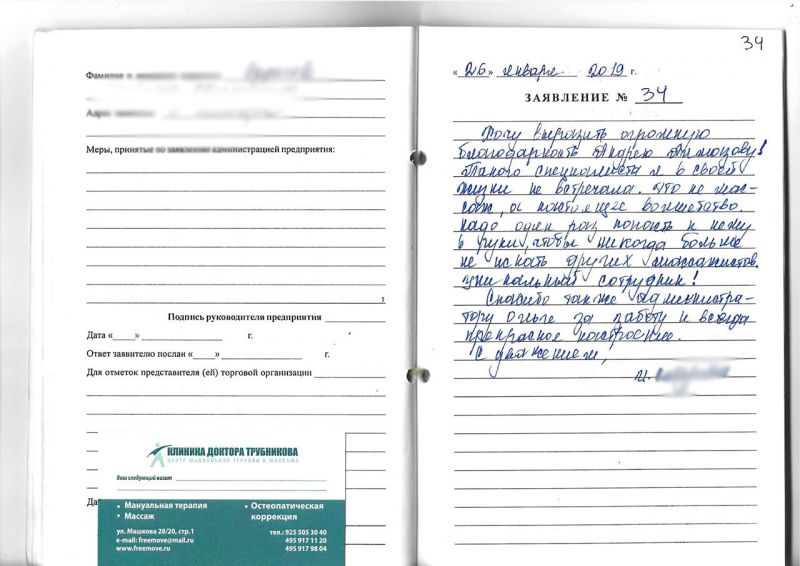 Фамилия и
Адрес
Меры, принятые по заявлению администрацией предприятия:
Подпись руководителя предприятия
Дата «    »                г.
Ответ заявителю послан «    »
Для отметок представителя (ей) торговой организации
Да
КЛИНИКА ДОКТОРА ТРУБНИКОВА
ЦЕНТР МАНУАЛЬНОЙ ТЕРАПИИ И МАССАЖА
Ваш следующий визит
• Мануальная терапия
• Массаж
• Остеопатическая
коррекция
ул. Машкова 28/20, стр.1
e-mail: freemove@mail.ru
www.freemove.ru
тел.: 925 505 30 40
495 917 11 20
495 917 98 04
34
« 26 » января 2019 г.
ЗАЯВЛЕНИЕ № 34
Хочу выразить огромную
благодарность Андрею
Такого специалиста я в своей
жизни не встречала. Это не мас-
саж, а настоящее волшебство.
Надо один раз попасть к нему
в руки, чтобы никогда больше
не искать других массажистов.
Уникальный сотрудник!
Спасибо также администра-
тору Ольге за работу и всегда
прекрасное настроение.
С уважением,
И.